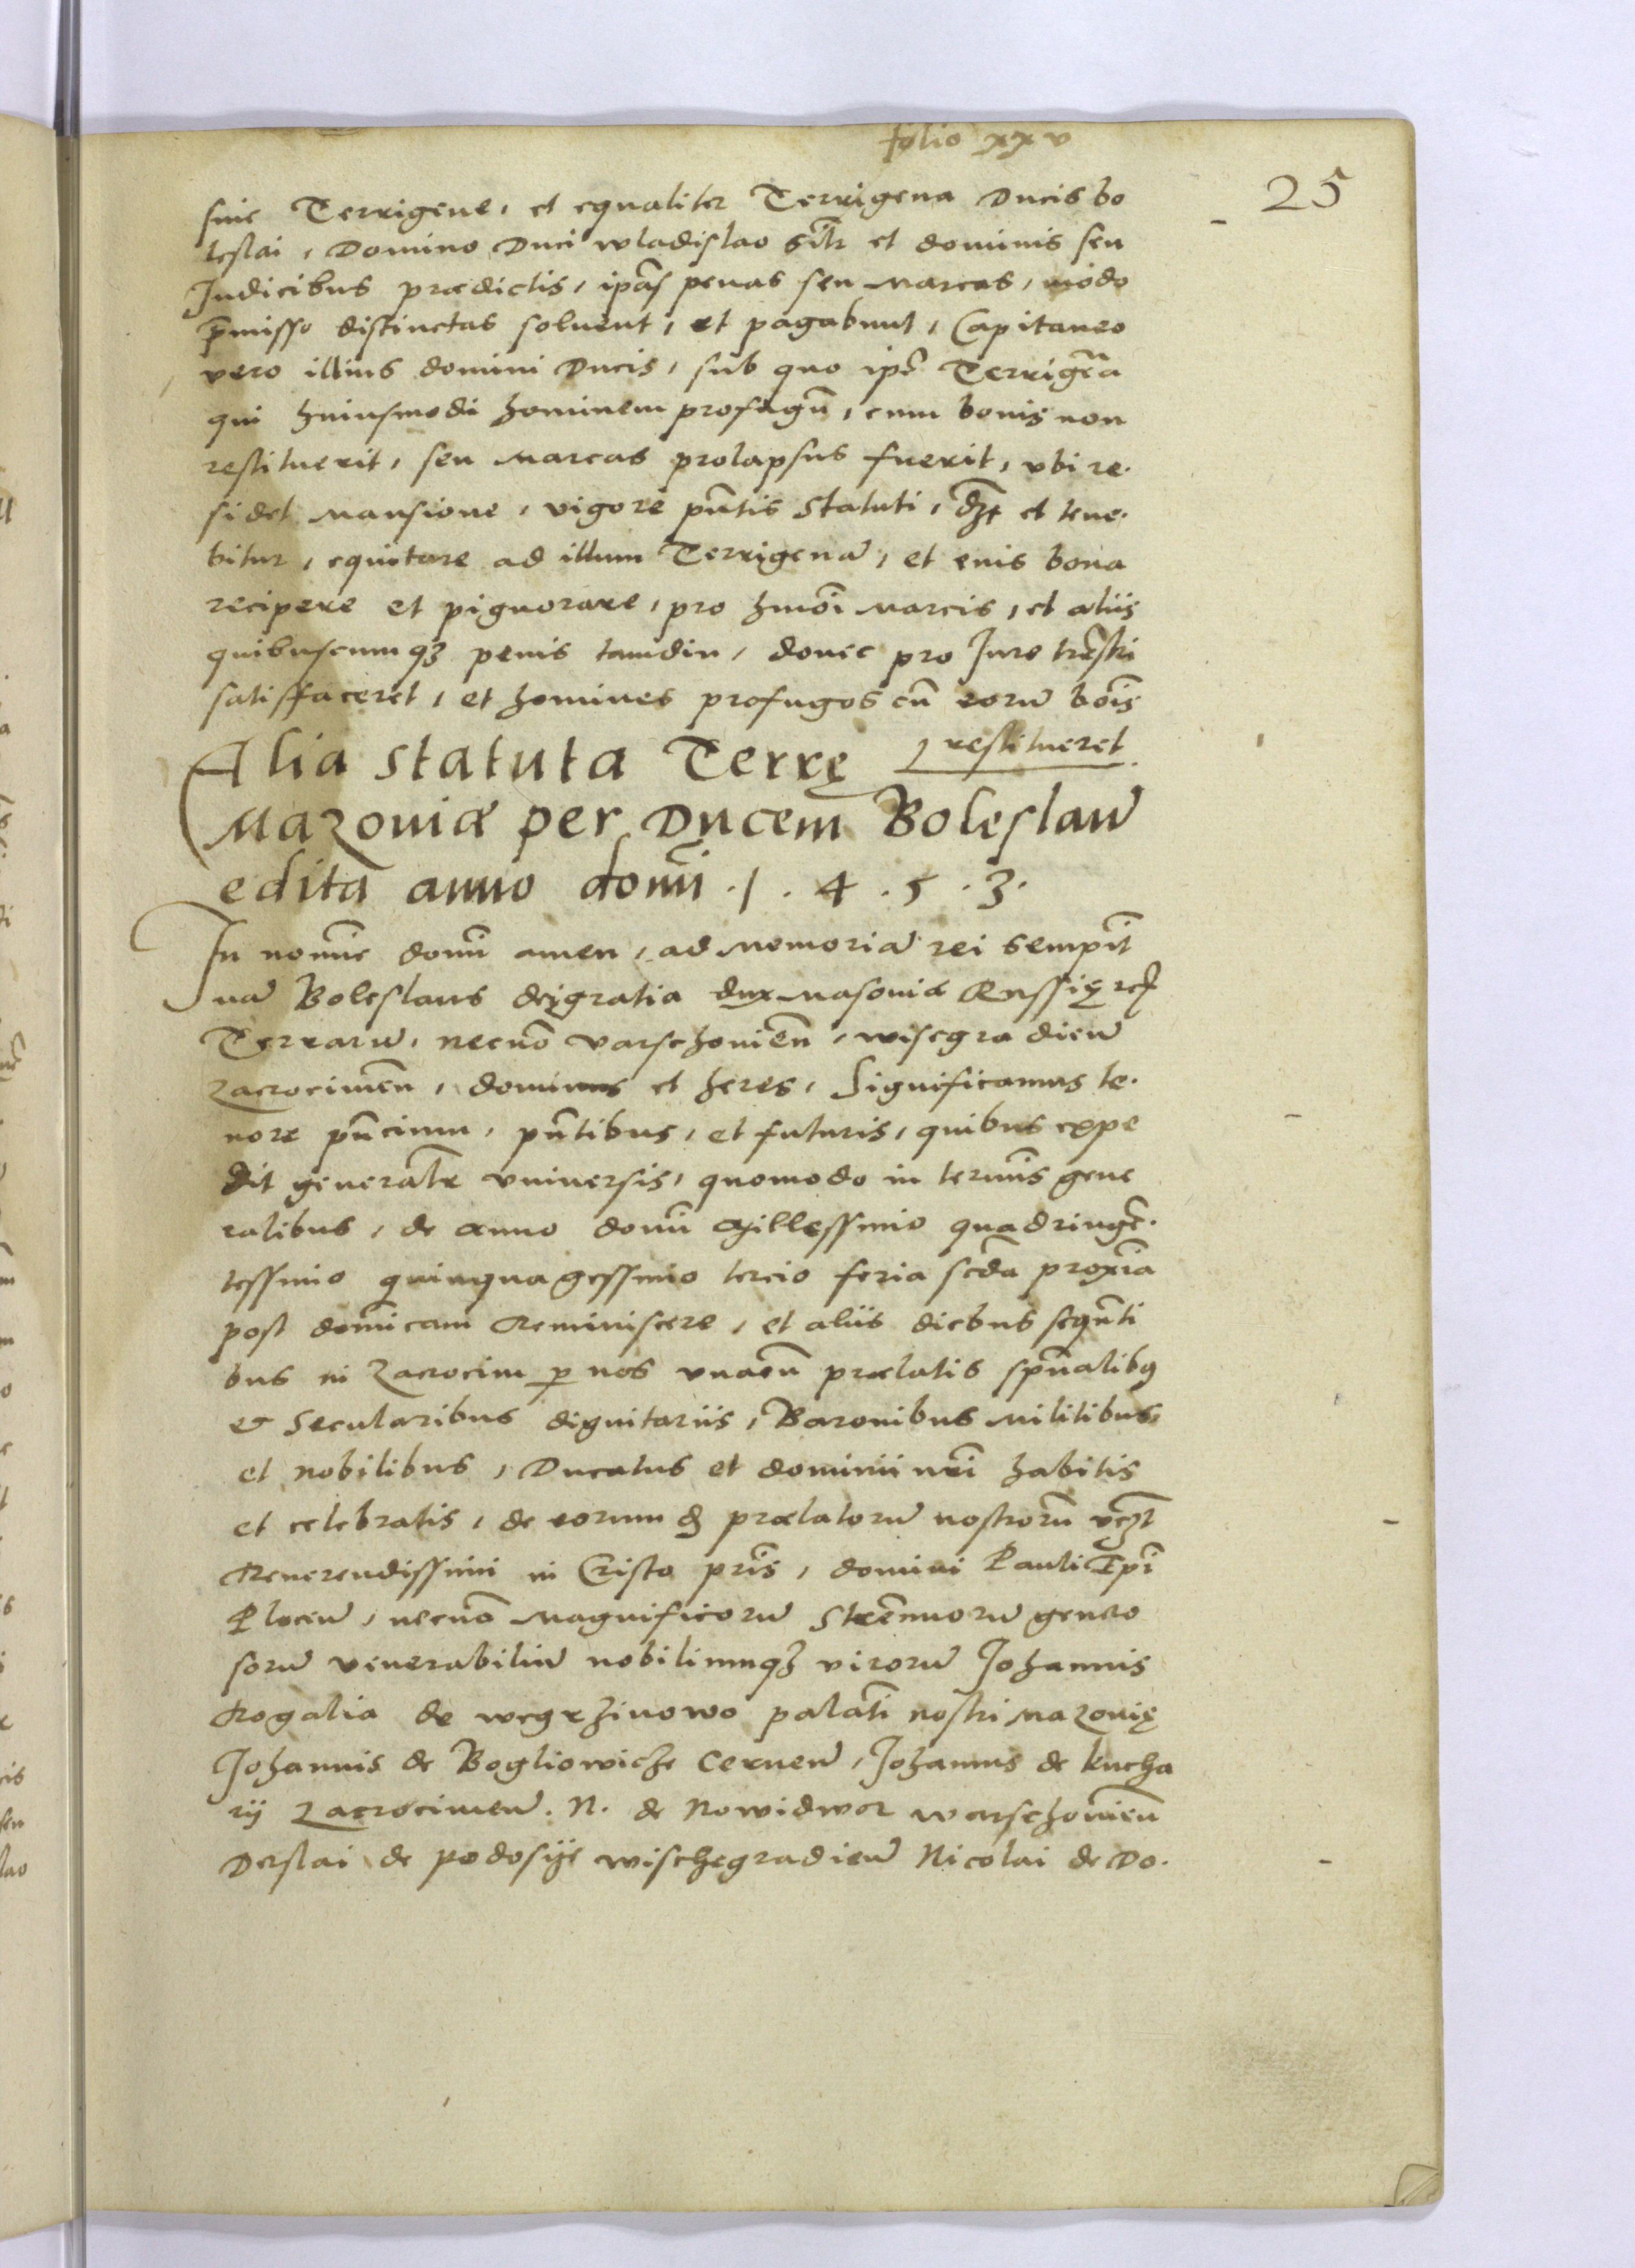 folio xxv
25
sine Terrigene, et equaliter Terrigena Ducis bo
leslai, Domino Duci wladislao silr et dominis seu
Judicibus prædictis, ipas penas seu marcas, modo
pmisso distinctas soluent, et pagabunt, Capitaneo
vero illius domini Ducis, sub quo ipe Terrigea
qui huiusmodi hominem profugu, cum bonis non
restituerit, seu marcas prolapsus fuerit, vbi re.
sidet mansione, vigore pntis statuti, dzt et tene.
bitur, equitare ad illum Terrigena, et euis bona
recipere et pignorare, pro hmoi marcis, et aliis
quibuscumqz penis tamdiu, donec pro Jure trestri
satisfaceret, et homines profugos cu eoru bois
restitueret.
Alia statuta Terrę
Mazoviæ per Ducem Boleslau
edita anno domi .1.4.5.3.
In nomie domi amen, ad memoria rei sempit
na Boleslaus deigratia dux masoviæ Russię rcz
Terraru, necno varschovien, wisegradien
Zacrocimen, dominus et heres, Significamus te.
nore pncium, pntibus, et futuris, quibus expe
dit generalr vniuersis, quomodo in termis gene
ralibus, de anno domi Millessimo quadringe.
tessimo quinquagessimo tercio feria scda proxia
post domicam Reminiscere, et aliis diebus sequnti
bus in Zacrocim p nos vnacu prælatis spualibus
& Secularibus dignitariis, Baronibus militibus,
et nobilibus, Ducatus et dominii nri habitis
et celebratis, de eorum qz prælatoru nostroru
Reuerendissimi in Cristo pris, domini Pauli Epi
Plocen, necno magnificoru Strenuoru genero
soru venerabiliu nobiliumqz viroru Johannis
Rogalia de wegrzinowo palati nostri mazovię
Johannis de Bogliowicze Cernen, Johannis de kucha
rij Zacrocimen. N. de Nowidwor warschovien
Derslai de podosije wischegradien Nicolai de Do.